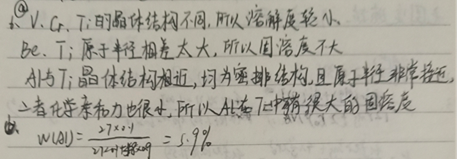 ④
V、Cr、Ti的晶体结构不同,所以溶解度较小、
Be、Ti原子半径相差太大,所以固溶度不大
Al与Ti晶体结构相近,均为密排结构,且原子半径非常接近,
二者化学亲和力也很小,所以Al在Ti中有很大的固溶度
W(Al)= 27×0.1 / 27×0.1+ ×0.9 = 5.9%